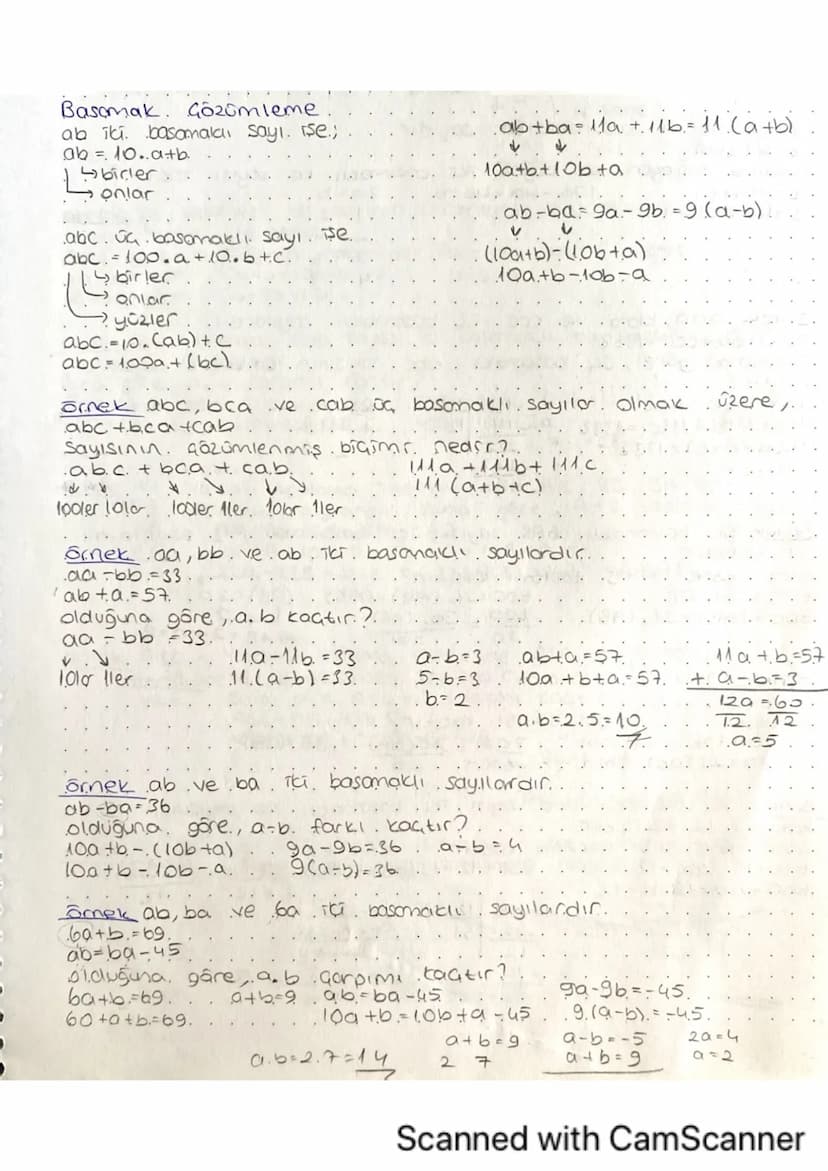 Basamak Çözümleme
ab iki basamaklı sayı ise;
ab = 10.a+b
↳birler
↳onlar
ab+ba=11a+11b=11.(a+b)
10a+b+10b+a
ab-ba=9a-9b=9(a-b)
(10a+b)-(10b+a)
10a+b-10b-a
abc üç basamaklı sayı ise
abc=100.a+10.b+c
↳birler
↳onlar
→yüzler
abc=10.(ab)+c
abc=100a+(bc)
Örnek abc, bca ve cab üç basamaklı sayılar olmak üzere,
abc+bca+cab
sayısının çözümlenmiş biçimi nedir?
abc + bca + cab
100ler 10lar 100ler 1ler 10lar 1ler
111a+111b+111c
111(a+b+c)
Örnek aa, bb ve ab iki basamaklı sayılardır.
aa-bb=33
ab+a=57
olduğuna göre, a.b kaçtır?
aa-bb=33
10lar 1ler
11a-11b=33
11.(a-b)=33
a-b=3
5-b=3
b=2
ab+a=57
10a+b+a=57
a.b=2.5=10
11a+b=57
+ a-b=3
12a=60
12 12
a=5
Örnek ab ve ba iki basamaklı sayılardır.
ab-ba=36
olduğuna göre, a-b farkı kaçtır?
10a+b-(10b+a) 9a-9b=36 a-b=4
10a+b-10b-a 9(a-b)=36
Örnek ab, ba ve 6a iki basamaklı sayılardır.
6a+b=69
ab=ba-45
olduğuna göre, a.b çarpımı kaçtır?
6a+b=69 a+b=9
60+a+b=69
ab=ba-45
10a+b=10b+a-45
9a-9b=-45
9.(a-b)=-45
a+b=9
2 7
a-b=-5
a+b=9
2a=4
a=2
a.b=2.7=14
Scanned with CamScanner